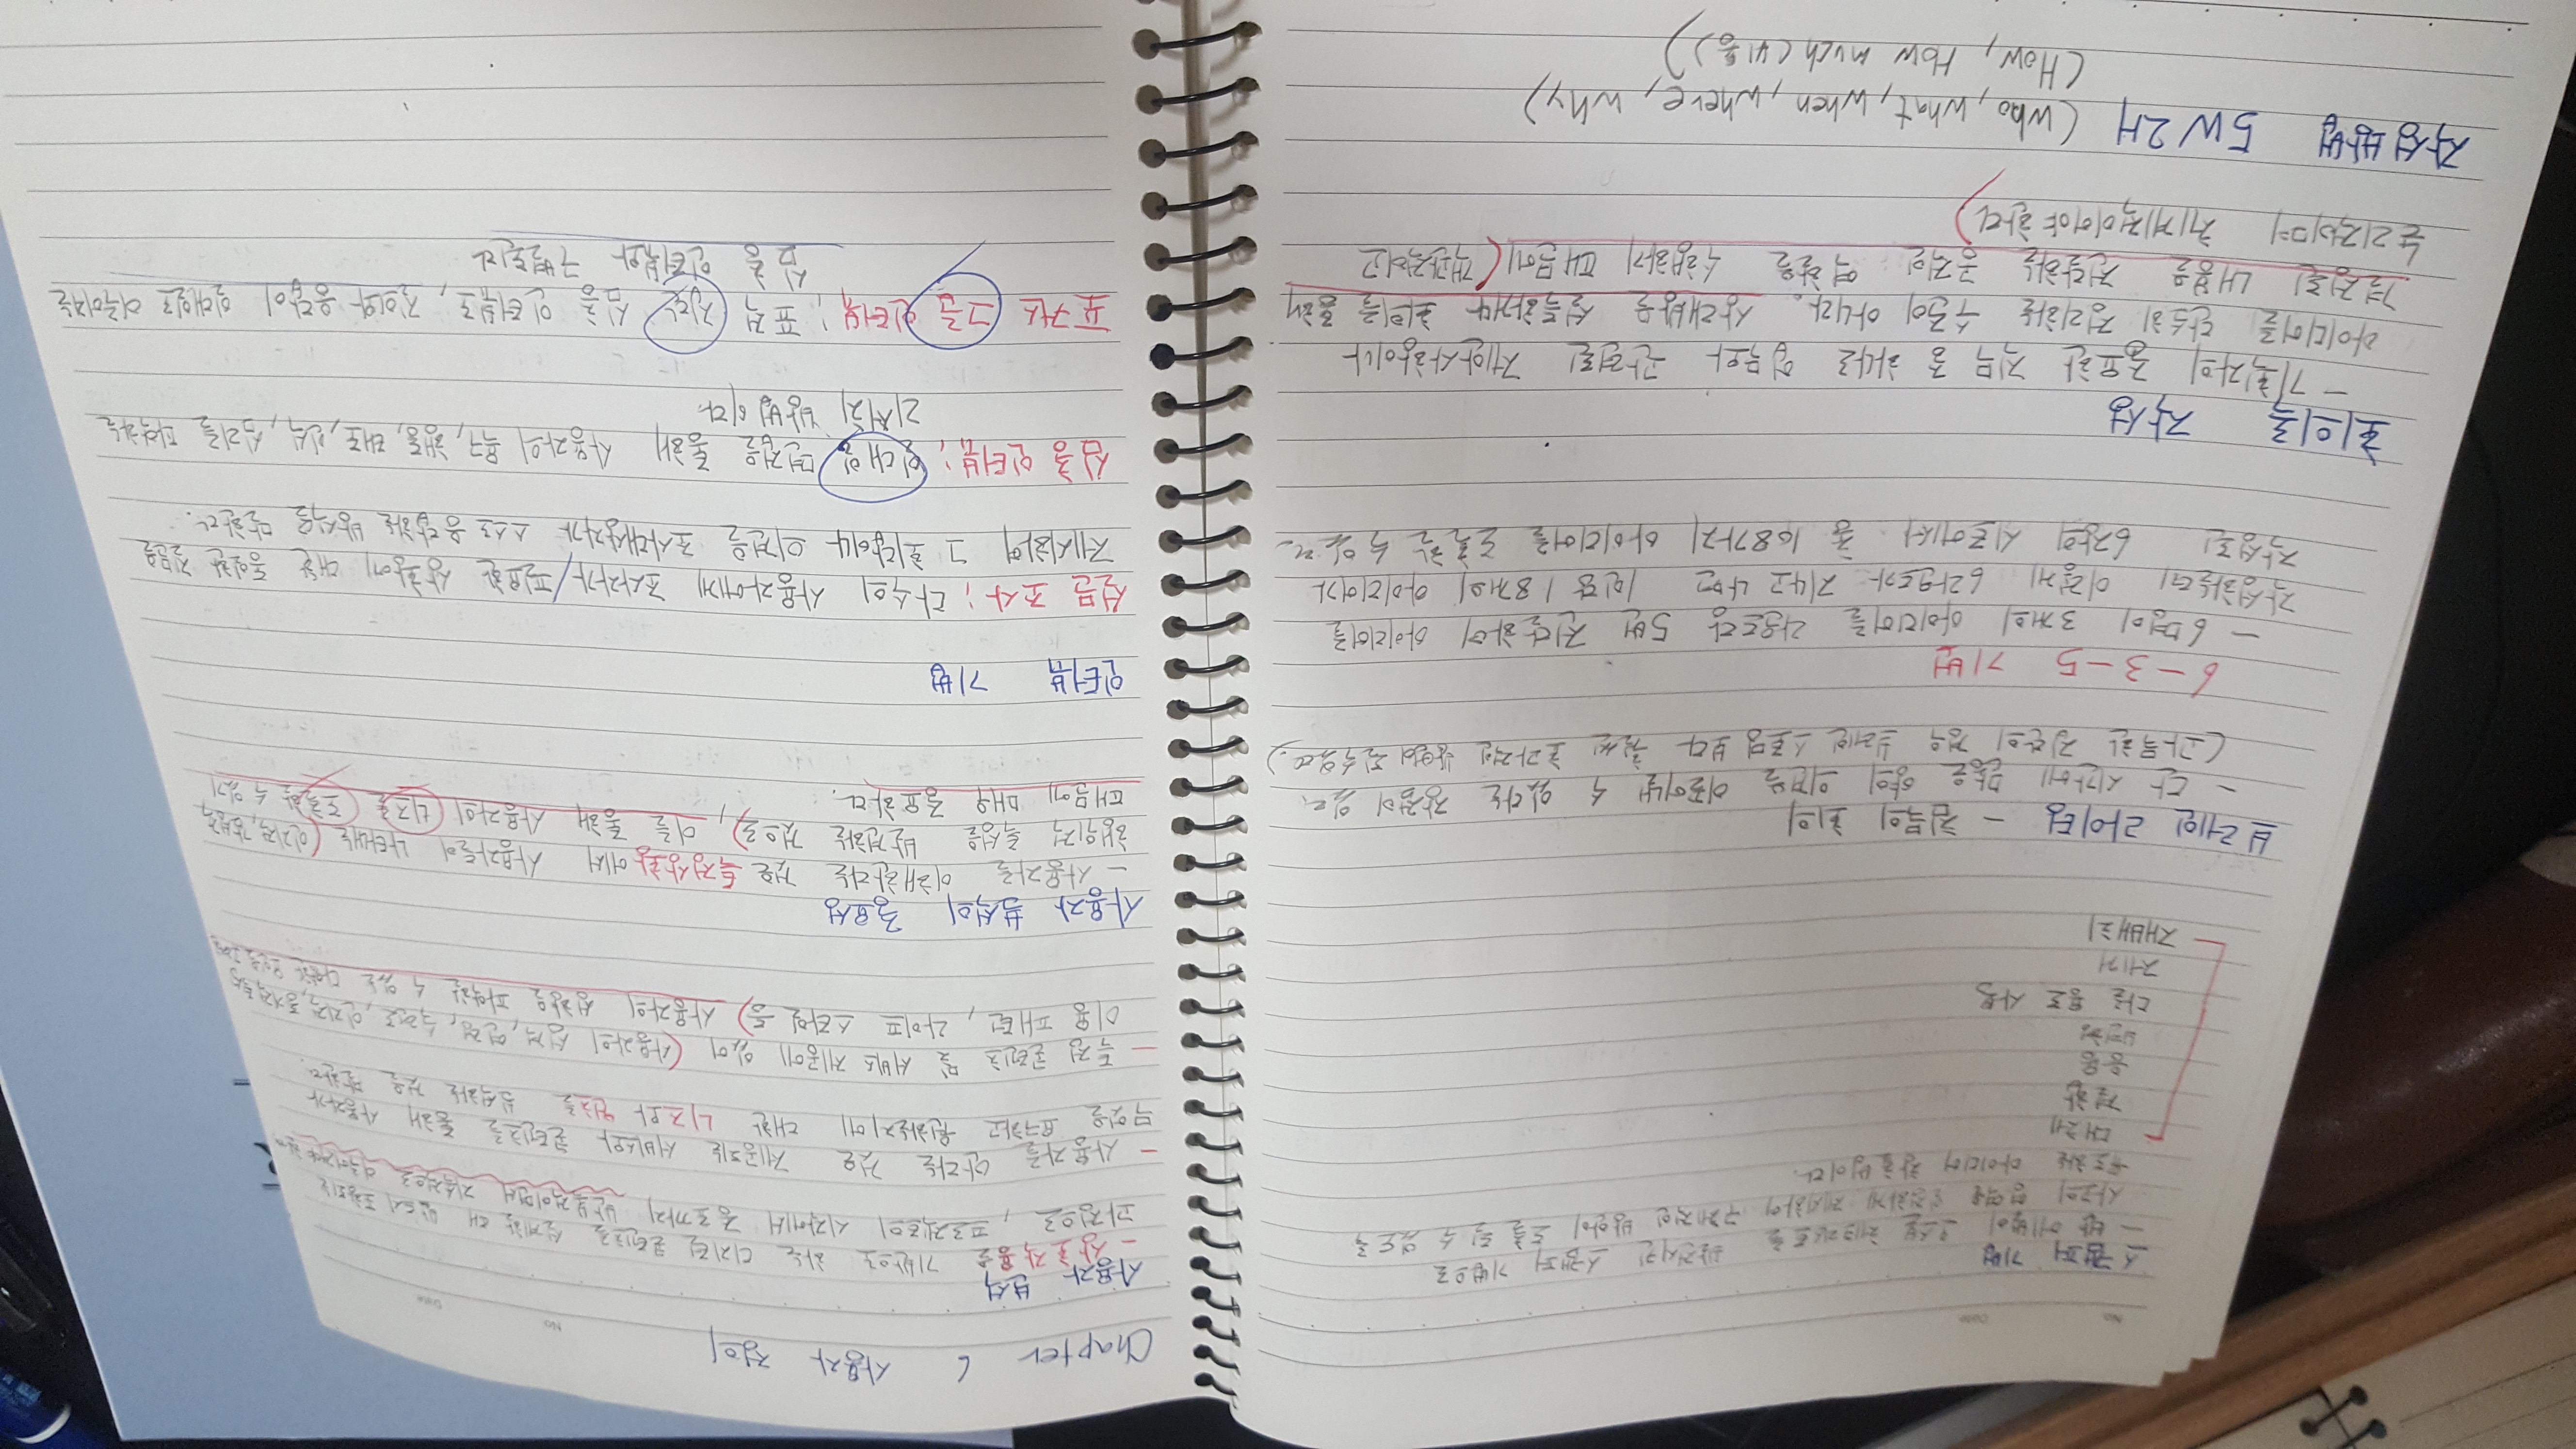 No. Date
스캠퍼 기법
- 밥 에벌이 오스본 체크리스트를 발전시킨 스캠퍼 기법으로
사고의 영역을 일정하게 제시하여 구체적인 방안이 도출 될 수 있도록
유도하는 아이디어 창출법이다.
대체
결합
응용
변형
다른 용도 사용
제거
재배치
브레인 라이팅 - 침묵의 회의
- 단 시간에 많은 양의 의견을 이끌어낼 수 있다는 장점이 있다.
(과묵한 집단의 경우 브레인 스토밍 보다 훨씬 효과적인 방법이 될 수 있다.)
6-3-5 기법
- 6명이 3개의 아이디어를 라운드당 5번 전달하여 아이디어를
작성하는데 이렇게 6라운드가 지나고 나면 1인당 18개의 아이디어가
작성된 6장의 시트에서 총 108가지 아이디어를 도출할 수 있다.
회의록 작성
- 기획자의 중요한 직무 중 하나로 업무와 관련된 제안사항이나
아이디어를 단순히 정리하는 수준이 아니라. 상대방을 설득하거나 회의를 통해
결정된 내용을 전달하는 공적인 역할을 수행하기 때문에 (객관적이고
논리적이며 체계적이어야 한다)
작성방법 5W 2H (who, what, when, where, why)
(How, How much (비용))
Chapter 6 사용자 정의
No. Date
사용자 분석
- 상호작용을 기반으로 하는 디지털 콘텐츠를 설계할 때 반드시 포함되는
과정으로, 프로젝트의 시작에서 종료까지 반복적이면서 지속적으로 이루어져야 한다
- 사용자를 안다는 것은 제공되는 서비스와 콘텐츠를 통해 사용자가
무엇을 요구하고 원하는지에 대한 니즈와 원츠를 분석하는 것을 말한다.
- 특정 콘텐츠 및 서비스 제공에 있어 (사용자의 성격, 연령, 숙련도, 인지적, 동기적 특성
이용 패턴, 라이프 스타일 등) 사용자의 성향을 파악할 수 있는 다양한 요인을
사용자 분석의 중요성
- 사용자를 이해한다는 것은 특정상황에서 사용자들이 나타내는 (인지적, 감성적
행위적 특성을 발견하는 것으로), 이를 통해 사용자의 니즈를 도출할 수 있기
때문에 매우 중요하다.
인터뷰 기법
설문 조사 ; 다수의 사용자에게 조사자가 / 필요한 상황에 대한 동일한 질문을
제시하여 그 회답이나 의견을 조사대상자가 스스로 응답하는 방식을 말한다.
심층 인터뷰 ; 일대일 면접을 통해 사용자의 욕구, 행동, 태도, 인식, 심리를 파악하는
리서치 방법이다.
포커스 그룹 인터뷰 ; 표적 집단 심층 인터뷰로, 질의와 응답이 일대일로 이루어지는
심층 인터뷰와 구별된다